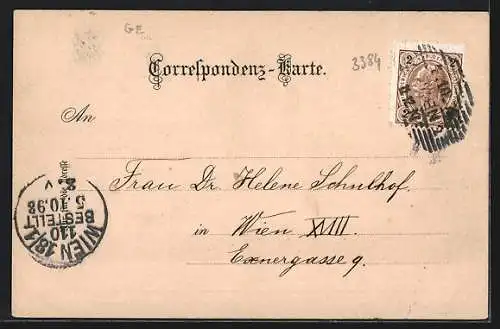 GE
3384
Correspondenz-Karte.
2
An
Frau Dr. Helene Schulhof
in Wien XVIII
Exnergasse 9.
WIEN 18/1
110
BESTELLT
5.10.98
8.V